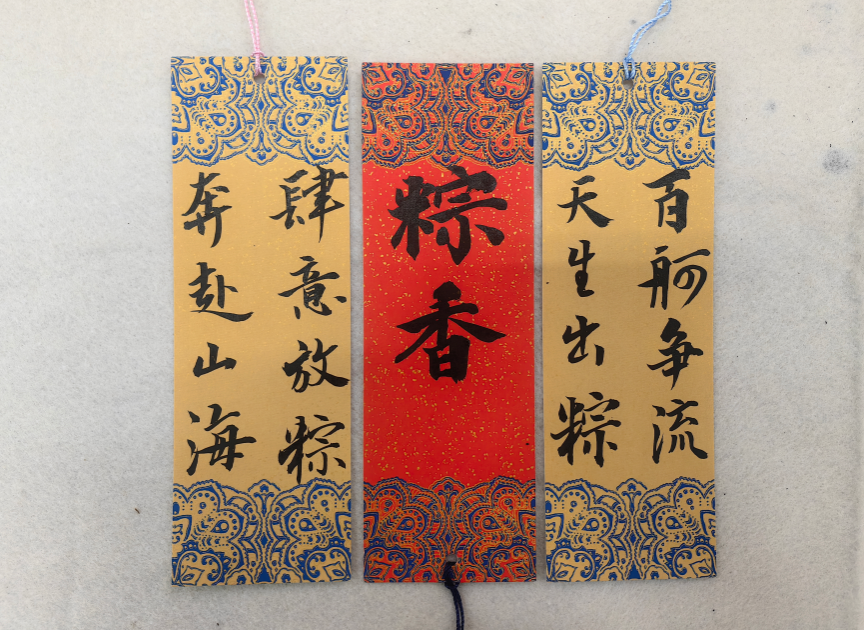 百舸争流
天生出粽
粽香
肆意放粽
奔赴山海